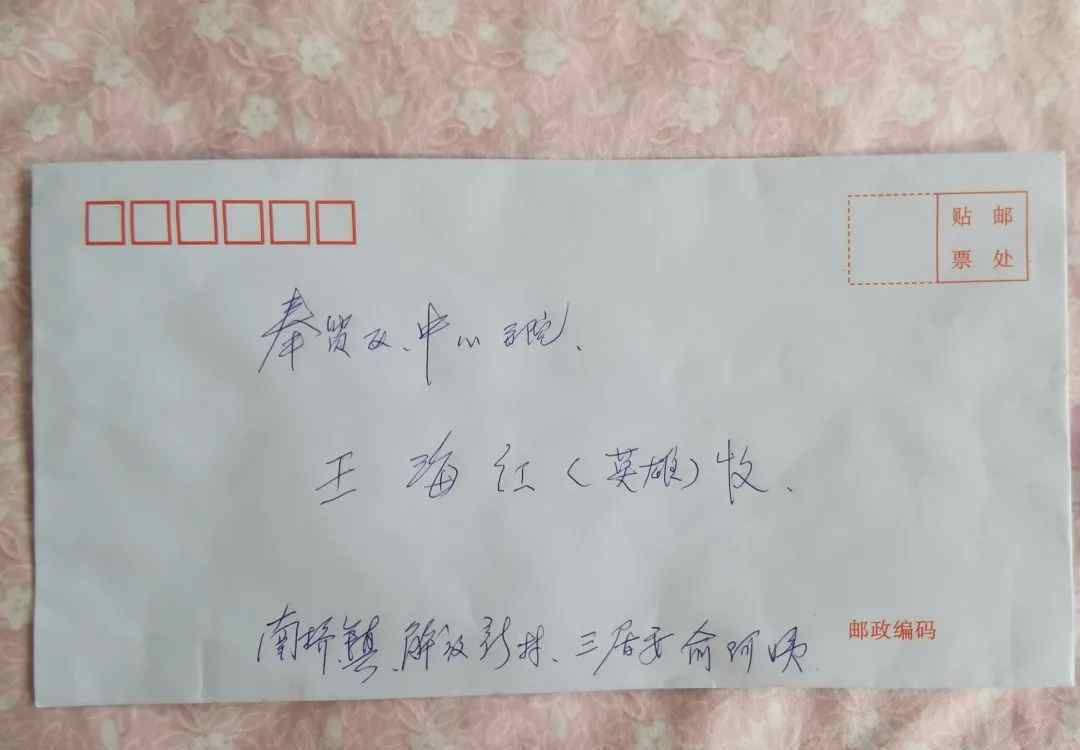 贴 邮
票 处
奉贤区、中心医院、
王 海 红（英雄）收、
南桥镇、解放新村、三居委俞阿姨
邮政编码